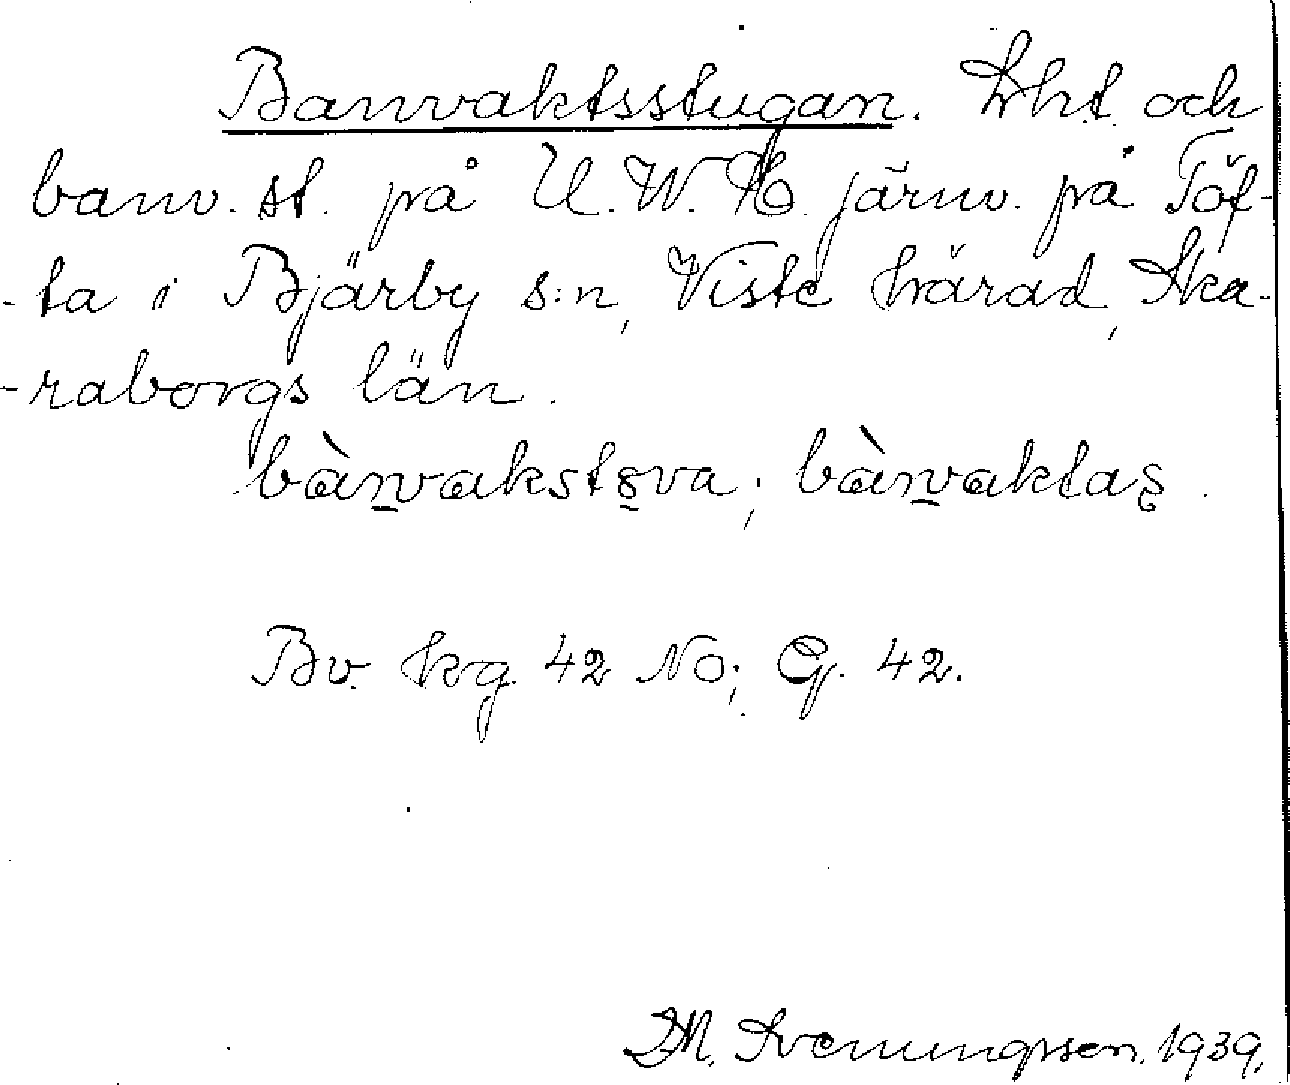 Banvaktsstugan. Lht. och
banv. st. på U. W. H. järnv. på Töf-
-ta i Bjärby s:n, Viste härad, Ska-
-raborgs län.
bànvakstɷva; bànvaktas
Bv. kg. 42 No; G. 42.
D.M. Svenungsson. 1939.